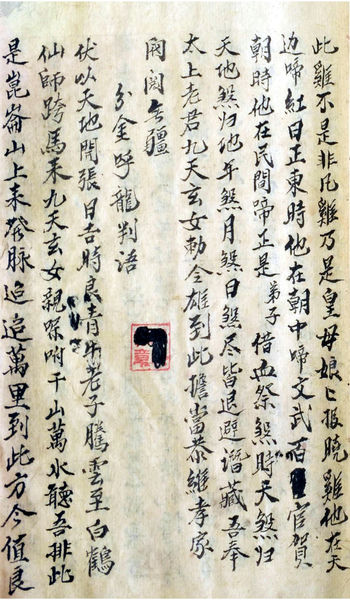 此雞不是非凡雞乃是皇母娘匕报曉雞他在天
边啼紅日正東時他在朝中啼文武百官賀
朝時他在民間啼正是弟子借血祭煞時天煞归
天地煞归他年煞月煞日煞尽皆退避谐藏吾奉
太上老君九天玄女勅令雄到此擔當恭維孝家
无疆
分金呼龍判语
伏以天地開張日吉時良青牛老子騰雲至白鶴
仙師跨馬来九天玄女親咐千山萬水聽吾排此
是崑崙山上来發脉迢迢萬里到此方今值良